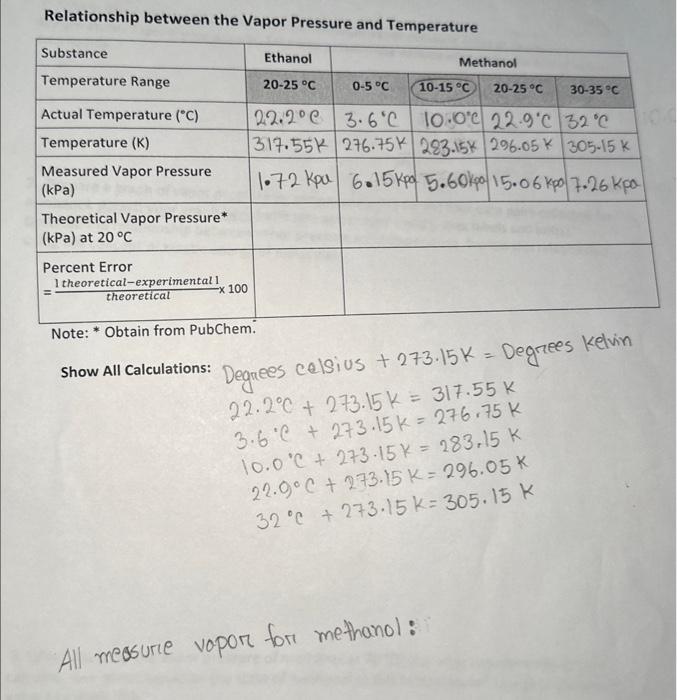 Relationship between the Vapor Pressure and Temperature
Substance Ethanol Methanol
Temperature Range 20-25 °C 0-5 °C 10-15 °C 20-25 °C 30-35 °C
Actual Temperature (°C) 22.2°C 3.6°C 10.0°C 22.9°C 32°C
Temperature (K) 317.55K 276.75K 283.15K 296.05 K 305.15 K
Measured Vapor Pressure
(kPa) 1.72 kpa 6.15kpa 5.60kpa 15.06 kpa 7.26 kpa
Theoretical Vapor Pressure*
(kPa) at 20 °C
Percent Error
= |theoretical−experimental| / theoretical x 100
Note: * Obtain from PubChem.
Show All Calculations: Degrees celsius + 273.15K = Degrees Kelvin
22.2°C + 273.15K = 317.55 K
3.6°C + 273.15K = 276.75 K
10.0°C + 273.15K = 283.15 K
22.9°C + 273.15 K = 296.05K
32°C + 273.15K = 305.15 K
All measure vapor for methanol: